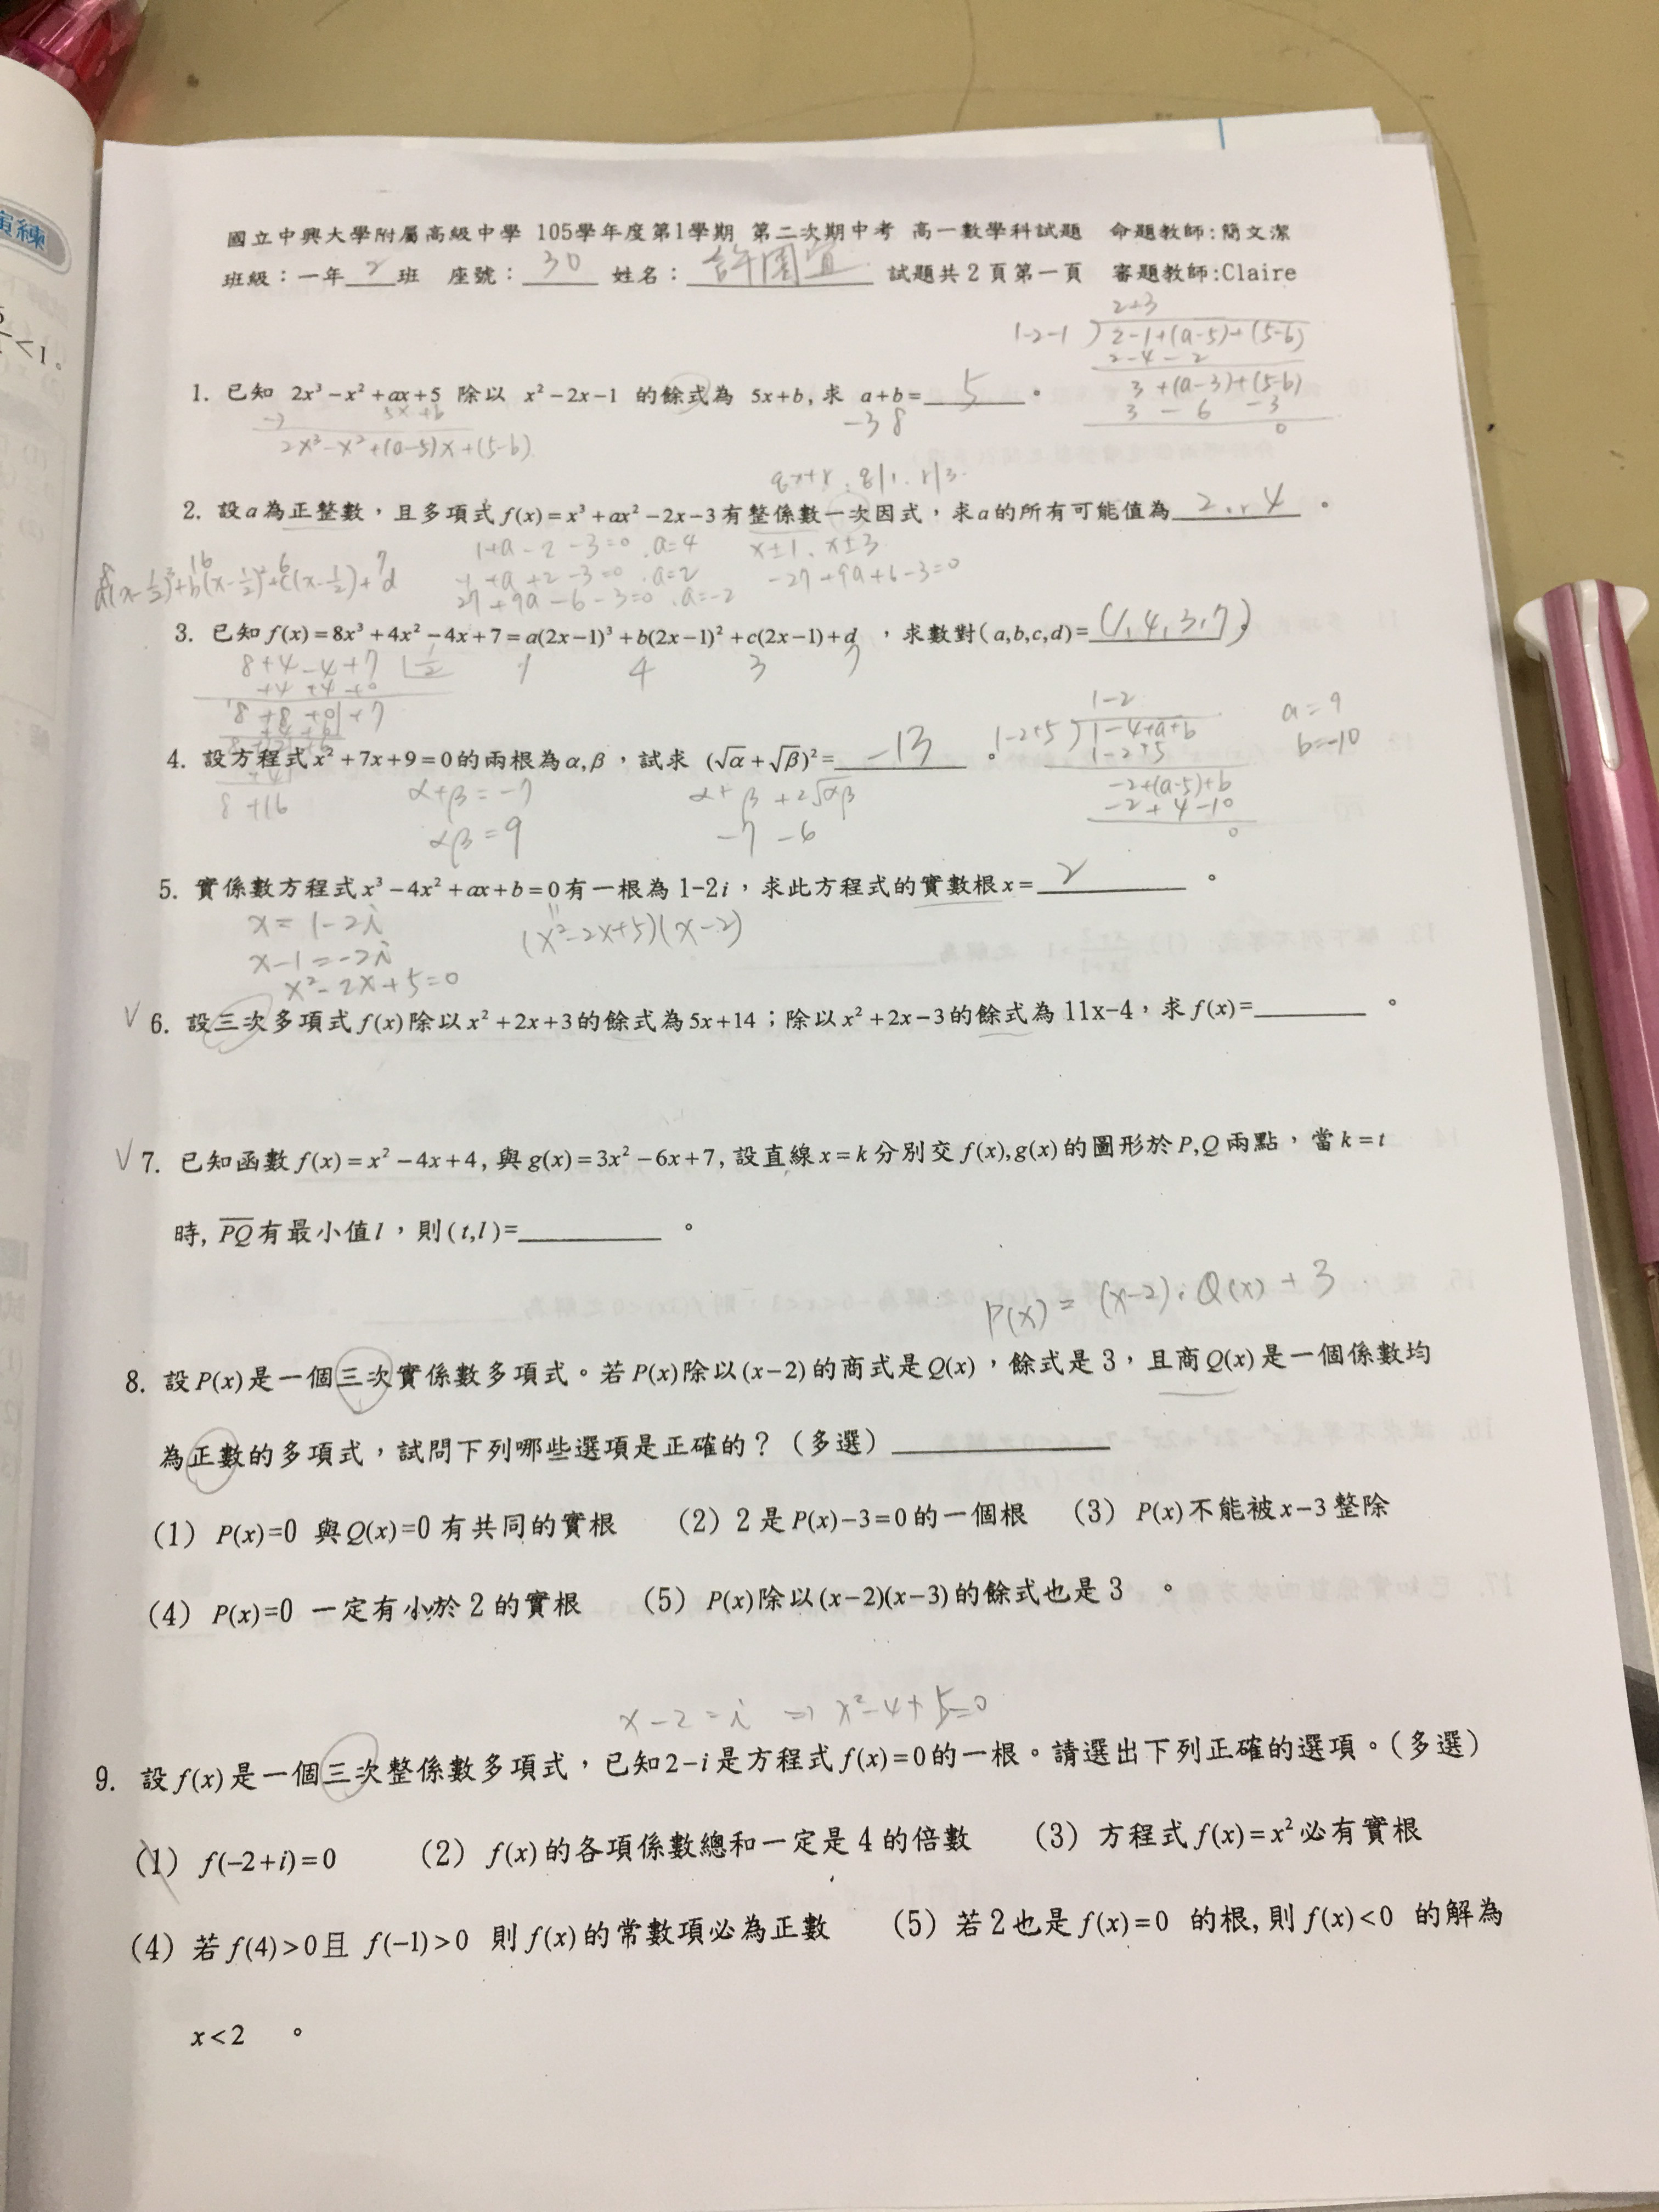 國立中興大學附屬高級中學 105學年度第1學期 第二次期中考 高一數學科試題 命題教師:簡文潔
班級：一年2班 座號：30 姓名： 試題共2頁第一頁 審題教師:Claire
2+3
1-2-1 ) 2-1+(a-5)+(5-b)
2-4-2
3+(a-3)+(5-b)
3-6-3
0
1. 已知 2x³-x²+ax+5 除以 x²-2x-1 的餘式為 5x+b, 求 a+b=5。
5x+b
-3 8
2x³-x²+(a-5)x+(5-b)
qx+r, q|1, r|3
2. 設a為正整數，且多項式f(x)=x³+ax²-2x-3有整係數一次因式，求a的所有可能值為2 or 4。
1+a-2-3=0, a=4 x±1, x±3
-1+a+2-3=0, a=2 -27+9a+6-3=0
27+9a-6-3=0, a=-2
8 16 6 7
a(x-1/2)³+b(x-1/2)²+c(x-1/2)+d
3. 已知f(x)=8x³+4x²-4x+7=a(2x-1)³+b(2x-1)²+c(2x-1)+d，求數對(a,b,c,d)=(1,4,3,7)。
1 4 3 7
8+4-4+7 1/2
+4+4+0
8+8+0+7
8+16
1-2
1-2+5 ) 1-4+a+b
1-2+5
-2+(a-5)+b
-2+4-10
0
a=9
b=-10
4. 設方程式x²+7x+9=0的兩根為α,β，試求 (√α+√β)²=-13。
α+β=-7 α+β+2√αβ
αβ=9 -7-6
5. 實係數方程式x³-4x²+ax+b=0有一根為1-2i，求此方程式的實數根x=2。
x=1-2i (x²-2x+5)(x-2)
x-1=-2i
x²-2x+5=0
6. 設三次多項式f(x)除以x²+2x+3的餘式為5x+14；除以x²+2x-3的餘式為11x-4，求f(x)=______。
7. 已知函數f(x)=x²-4x+4, 與g(x)=3x²-6x+7, 設直線x=k分別交f(x),g(x)的圖形於P,Q兩點，當k=t
時, PQ有最小值l，則(t,l)=______。
P(x)=(x-2)·Q(x)+3
8. 設P(x)是一個三次實係數多項式。若P(x)除以(x-2)的商式是Q(x)，餘式是3，且商Q(x)是一個係數均
為正數的多項式，試問下列哪些選項是正確的？（多選）______
（1）P(x)=0 與Q(x)=0有共同的實根 （2）2是P(x)-3=0的一個根 （3）P(x)不能被x-3整除
（4）P(x)=0 一定有小於2的實根 （5）P(x)除以(x-2)(x-3)的餘式也是3。
x-2=i ⇒ x²-4+5=0
9. 設f(x)是一個三次整係數多項式，已知2-i是方程式f(x)=0的一根。請選出下列正確的選項。（多選）
（1）f(-2+i)=0 （2）f(x)的各項係數總和一定是4的倍數 （3）方程式f(x)=x²必有實根
（4）若f(4)>0且 f(-1)>0 則f(x)的常數項必為正數 （5）若2也是f(x)=0 的根, 則f(x)<0 的解為
x<2。